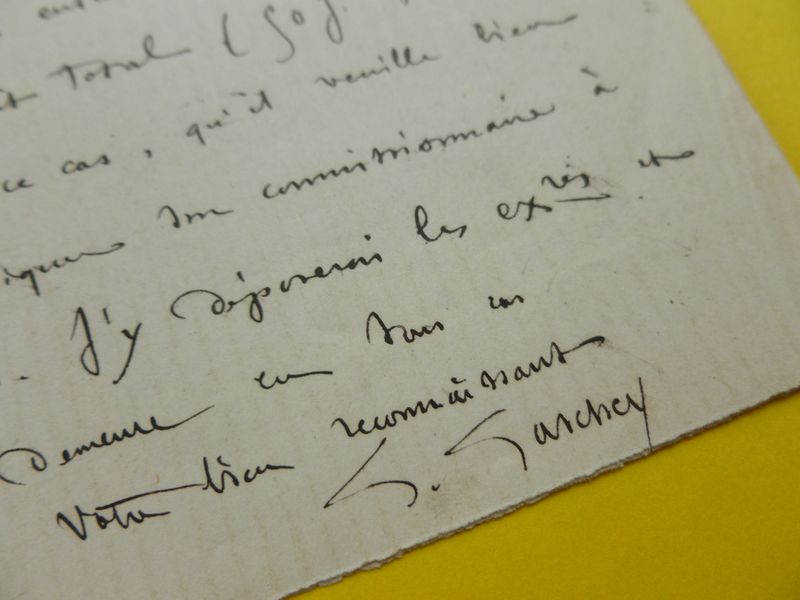 total (50 f.
ce cas, qu'il veuille bien
son commissionnaire à
. J'y déposerai les exres et
demeure en tous cas
votre bien reconnaissant
G. Garcher